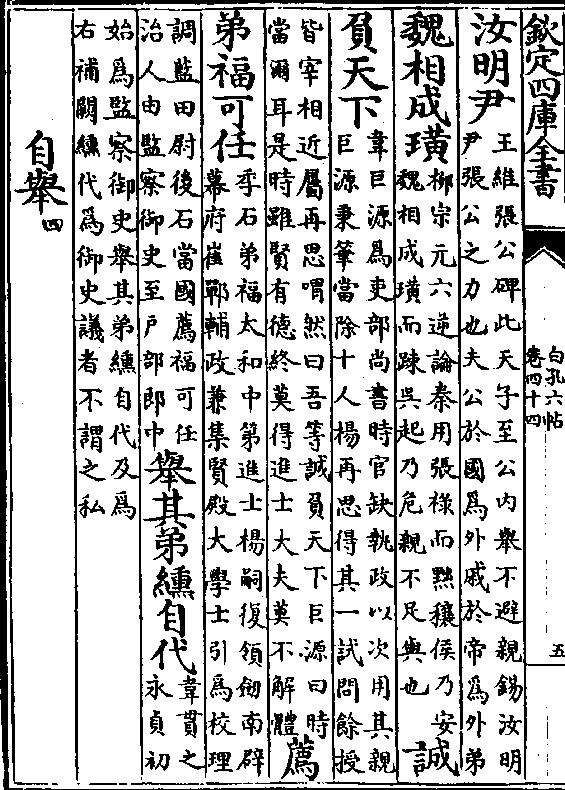 欽定四庫全書
白孔六帖
卷四十四
五
汝明尹
王維張公碑此天子至公内舉不避親錫汝明
尹張公之力也夫公於國爲外戚於帝爲外弟
魏相成璜
柳宗元六逆論秦用張様而黜穰侯乃安
魏相成璜而踈吳起乃危親不足與也
誠
負天下
韋巨源爲吏部尚書時官缺執政以次用其親
巨源秉筆當除十人楊再思得其一試問餘授
皆宰相近屬再思喟然曰吾等誠負天下巨源曰時
當爾耳是時雖賢有德終莫得進士大夫莫不解體
薦
弟福可任
李石弟福太和中第進士楊嗣復領劒南辟
幕府崔鄲輔政兼集賢殿大學士引爲校理
調藍田尉後石當國薦福可任
治人由監察御史至戶部郎中
舉其弟纁自代
韋貫之
永貞初
始爲監察御史舉其弟纁自代及爲
右補闕纁代爲御史議者不謂之私
自舉四